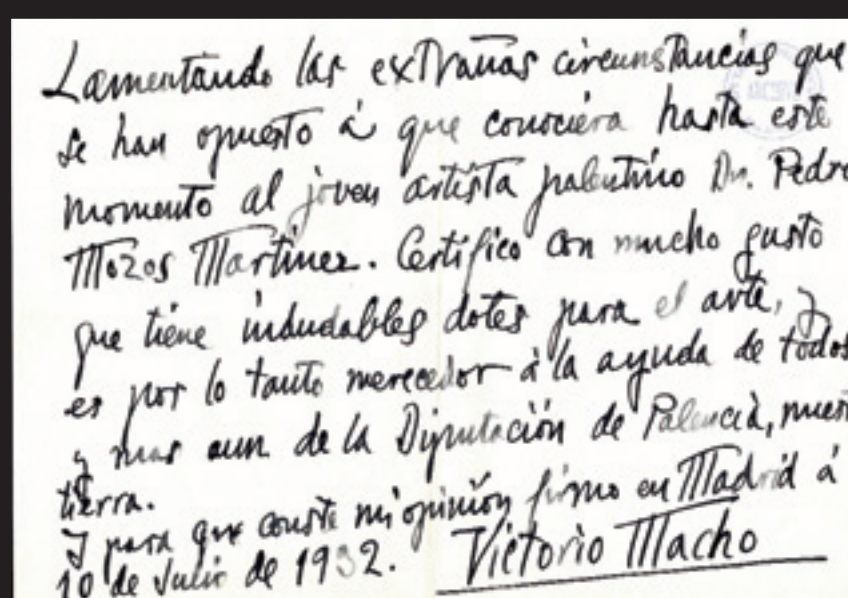 Lamentando las extrañas circunstancias que
se han opuesto á que conociera hasta este
momento al joven artista palentino Dn. Pedro
Mozos Martinez. Certifico con mucho gusto
que tiene indudables dotes para el arte, y
es por lo tanto merecedor á la ayuda de todos
y mas aun de la Diputación de Palencia, nuest
tierra.
Y para que conste mi opinión firmo en Madrid á
10 de Julio de 1932. Victorio Macho